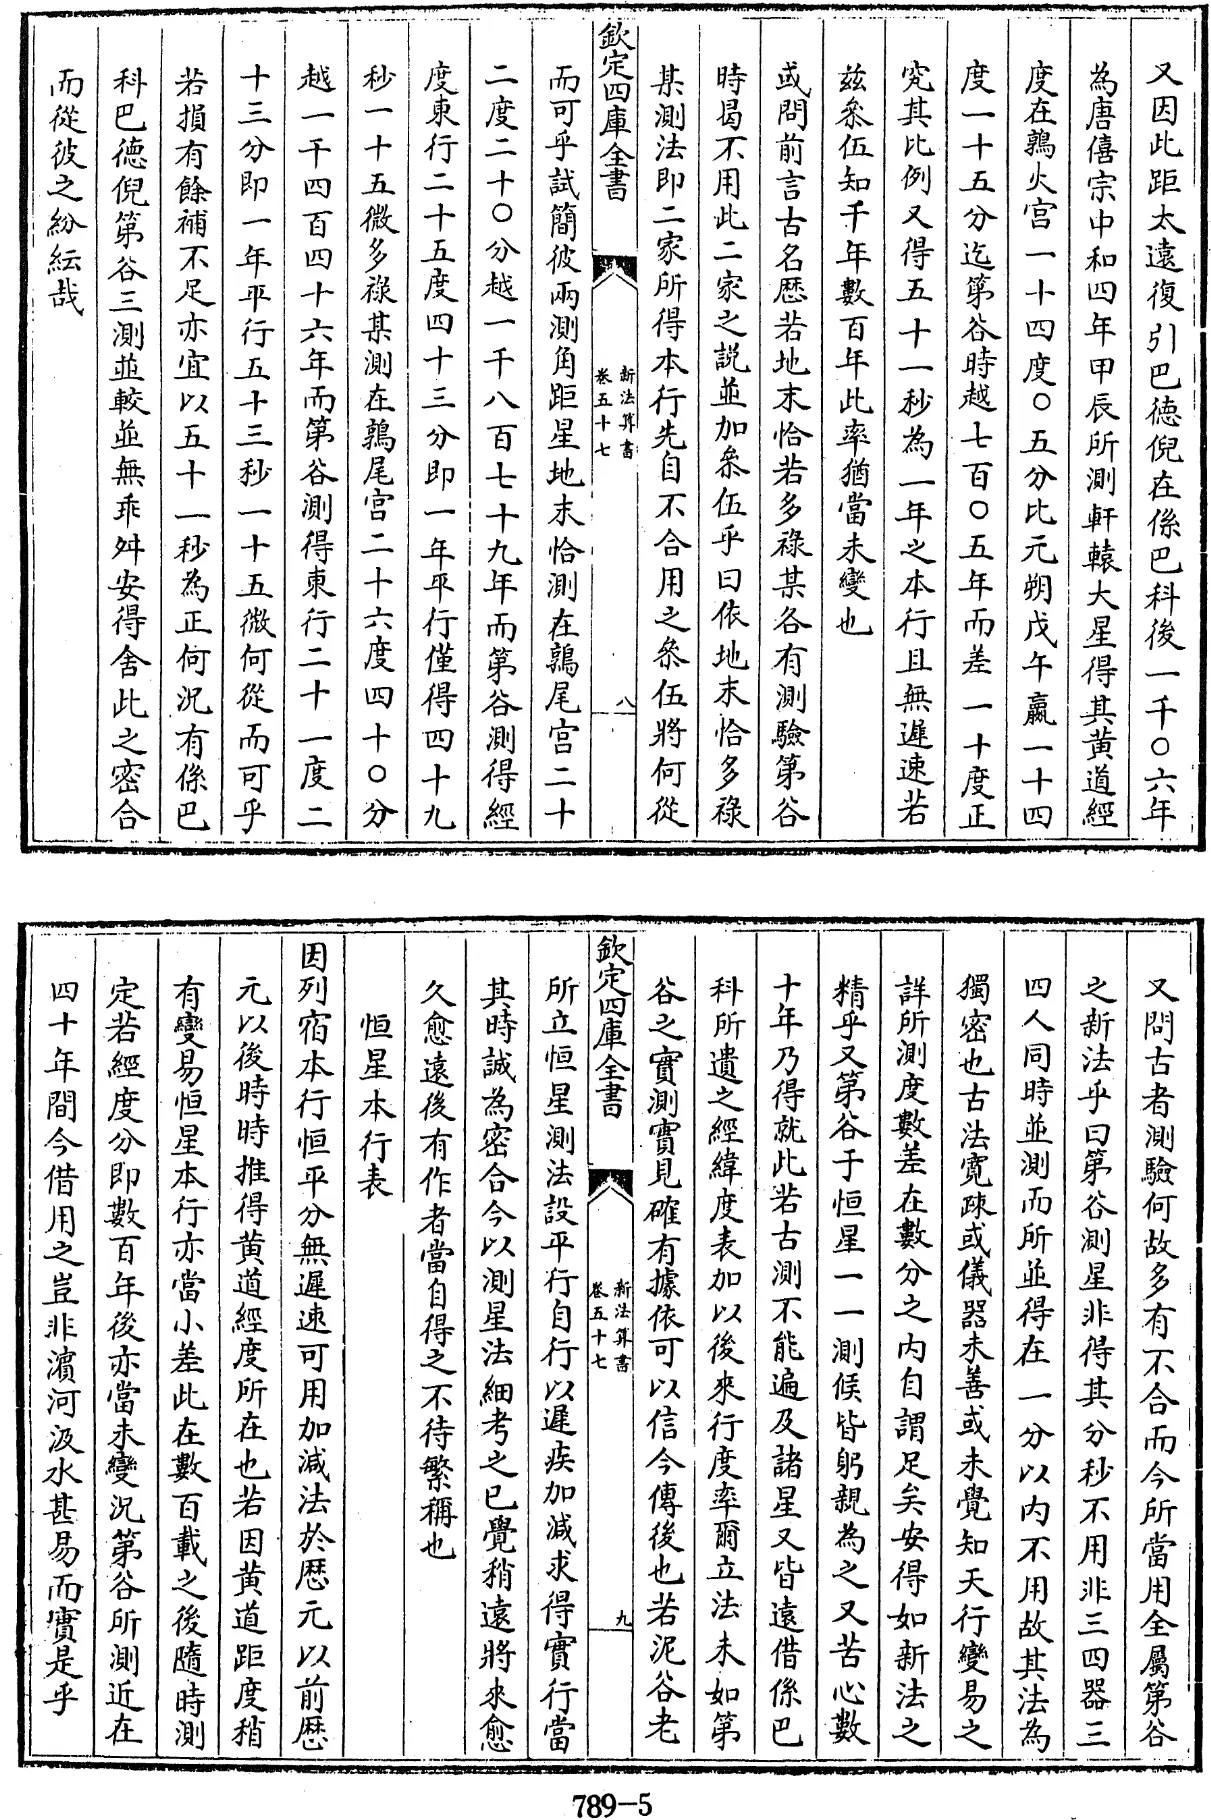 又因此距太遠復引巴德倪在係巴科後一千〇六年
為唐僖宗中和四年甲辰所測軒轅大星得其黄道經
度在鶉火宫一十四度〇五分比元朔戊午嬴一十四
度一十五分迄第谷時越七百〇五年而差一十度正
究其比例又得五十一秒為一年之本行且無遲速若
兹叅伍知千年數百年此率猶當未變也
或問前言古名厯若地末恰若多祿某各有測驗第谷
時曷不用此二家之説並加叅伍乎曰依地末恰多祿
某測法即二家所得本行先自不合用之叅伍將何從
欽定四庫全書
新法算書
卷五十七
八
而可乎試簡彼兩測角距星地末恰測在鶉尾宫二十
二度二十〇分越一千八百七十九年而第谷測得經
度東行二十五度四十三分即一年平行僅得四十九
秒一十五微多祿某測在鶉尾宫二十六度四十〇分
越一千四百四十六年而第谷測得東行二十一度二
十三分即一年平行五十三秒一十五微何從而可乎
若損有餘補不足亦宜以五十一秒為正何况有係巴
科巴德倪第谷三測並較並無乖舛安得舍此之密合
而從彼之紛紜哉
又問古者測驗何故多有不合而今所當用全屬第谷
之新法乎曰第谷測星非得其分秒不用非三四器三
四人同時並測而所並得在一分以内不用故其法為
獨密也古法寛疎或儀器未善或未覺知天行變易之
詳所測度數差在數分之内自謂足矣安得如新法之
精乎又第谷于恒星一一測候皆躬親為之又苦心數
十年乃得就此若古測不能遍及諸星又皆遠借係巴
科所遺之經緯度表加以後來行度率爾立法未如第
谷之實測實見確有據依可以信今傳後也若泥谷老
欽定四庫全書
新法算書
卷五十七
九
所立恒星測法設平行自行以遲疾加減求得實行當
其時誠為密合今以測星法細考之已覺稍遠將來愈
久愈遠後有作者當自得之不待繁稱也
恒星本行表
因列宿本行恒平分無遲速可用加減法於厯元以前厯
元以後時時推得黄道經度所在也若因黄道距度稍
有變易恒星本行亦當小差此在數百載之後隨時測
定若經度分即數百年後亦當未變况第谷所測近在
四十年間今借用之豈非濵河汲水甚易而實是乎
789-5